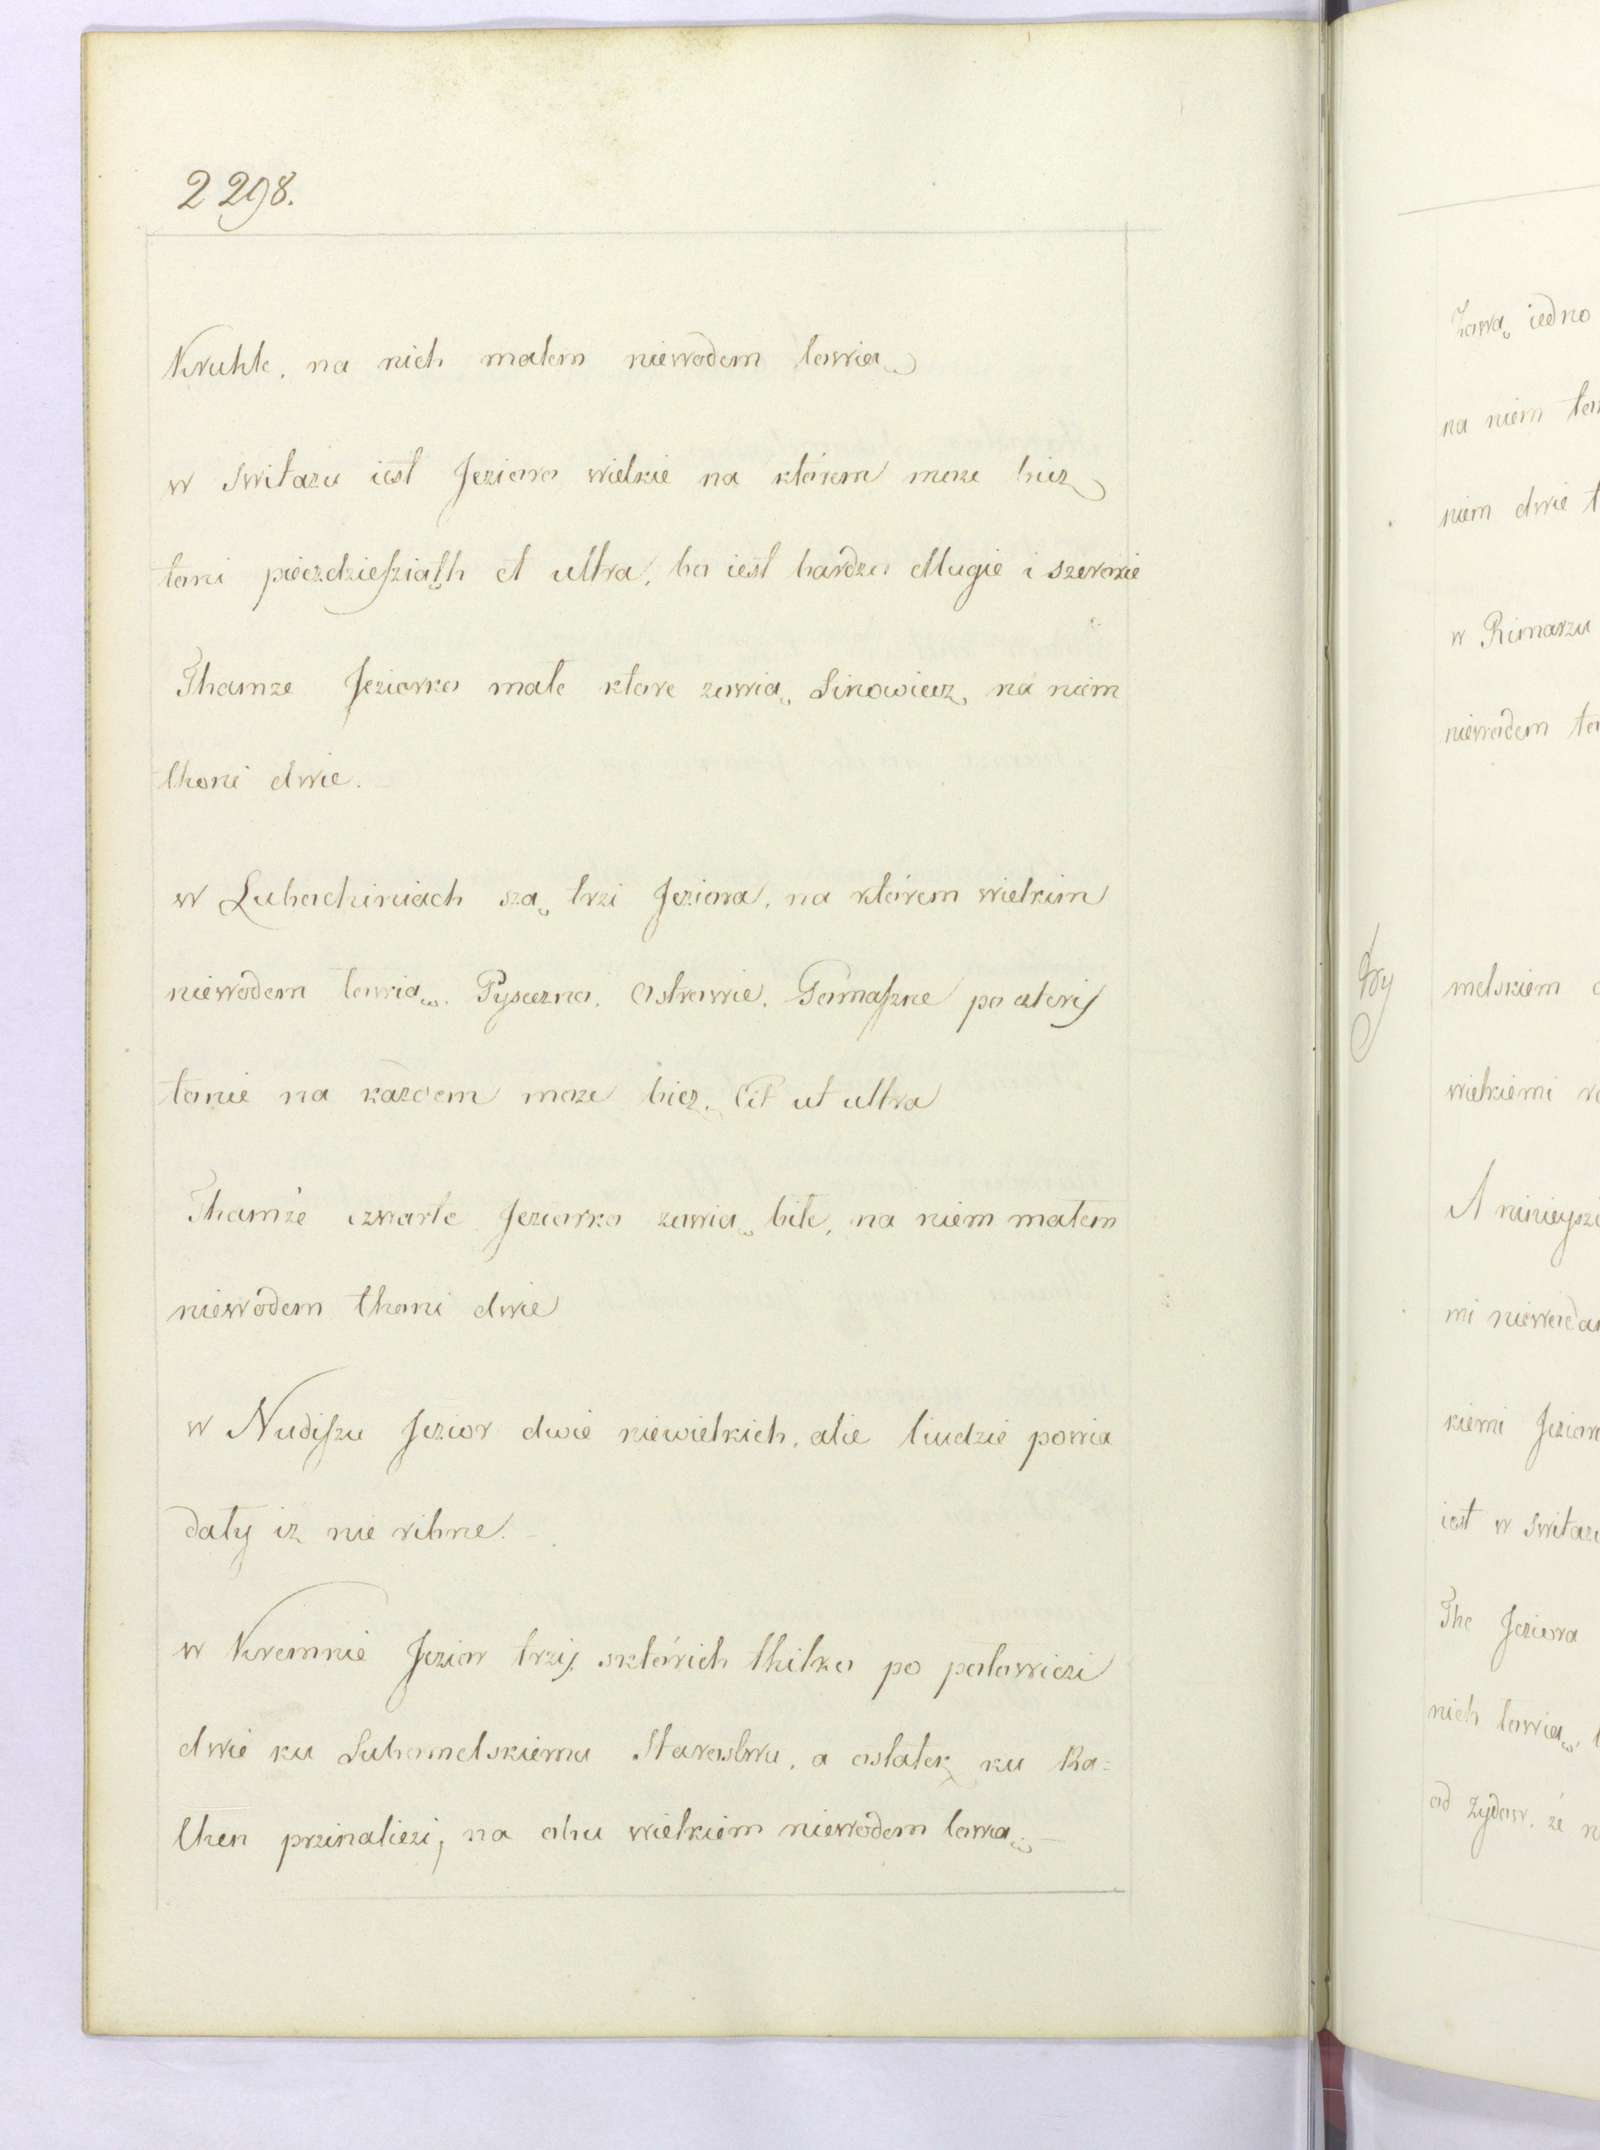 2298.
Kruhle, na nich małem niewodem łowią
w Switazu iest Jezioro wielkie na którem może bicz
toni pieczdziesziąth et ultra, bo iest bardzo dlugie i szerokie
Thamze Jeziorko małe które zowią Linowiecz, na niem
thoni dwie.
w Luhochiniach szą trzi Jeziora, na którem wielkim
niewodem łowią. Pyseczno. Ostrowie. Domaszne po cterij
tonie na kazdem może bicz. Et ut ultra
Thamże czwarte Jeziorko zowią biłe, na niem małem
niewodem thoni dwie
w Nudiszu Jezior dwie niewielkich, alie liudzie powia
dały iz nie ribne.
w Kremnie Jezior trzij, sktórich thilko po połowiczi
dwie ku Luhomelskiemu Starostwu, a ostatek ku Ra=
then przinalieżi, na obu wielkiem niewodem łowią
Zową iedno
na niem
niem dwie
w Rimarzu
niewodem
melskiem
wielkiemi
A ninieysz
mi
kiemi
iest w
The Jeziora
nich łowią
od Żydow, że